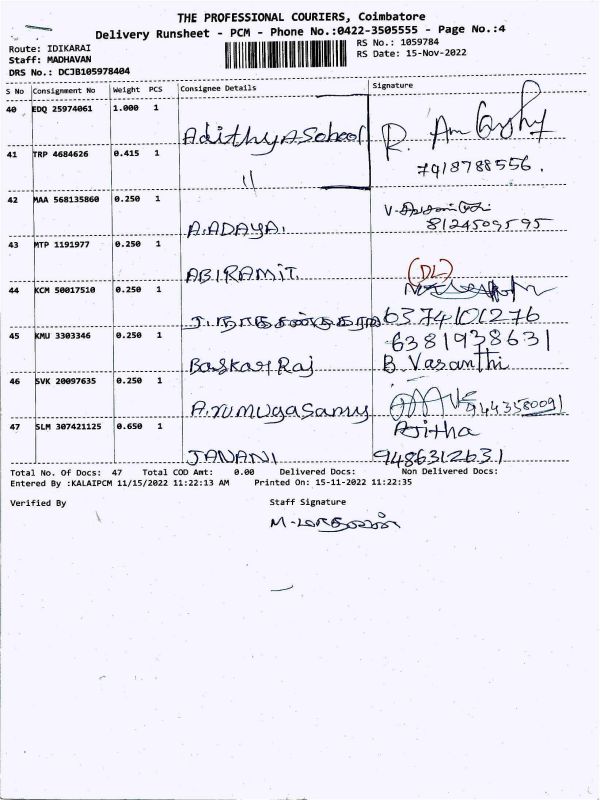 THE PROFESSIONAL COURIERS, Coimbatore
Delivery Runsheet - PCM - Phone No.:0422-3505555 - Page No.:4
Route: IDIKARAI
RS No.: 1059784
Staff: MADHAVAN
RS Date: 15-Nov-2022
DRS No.: DCJB105978404
S No Consignment No Weight PCS Consignee Details Signature
40 EDQ 25974061 1.000 1 Adithya School
41 TRP 4684626 0.415 1 〃 7918788556.
42 MAA 568135860 0.250 1 A.ADAYA. 8124509595
43 MTP 1191977 0.250 1 ABIRAMIT (DL)
44 KCM 50017510 0.250 1 6374101276
45 KMU 3303346 0.250 1 Baskar Raj 6381938631
B. Vasanthi
46 SVK 20097635 0.250 1 Arumugasamy 9443580091
47 SLM 307421125 0.650 1 JANANI Ajitha
9486312631
Total No. Of Docs: 47 Total COD Amt: 0.00 Delivered Docs: Non Delivered Docs:
Entered By :KALAIPCM 11/15/2022 11:22:13 AM Printed On: 15-11-2022 11:22:35
Verified By Staff Signature
M-மாதவன்